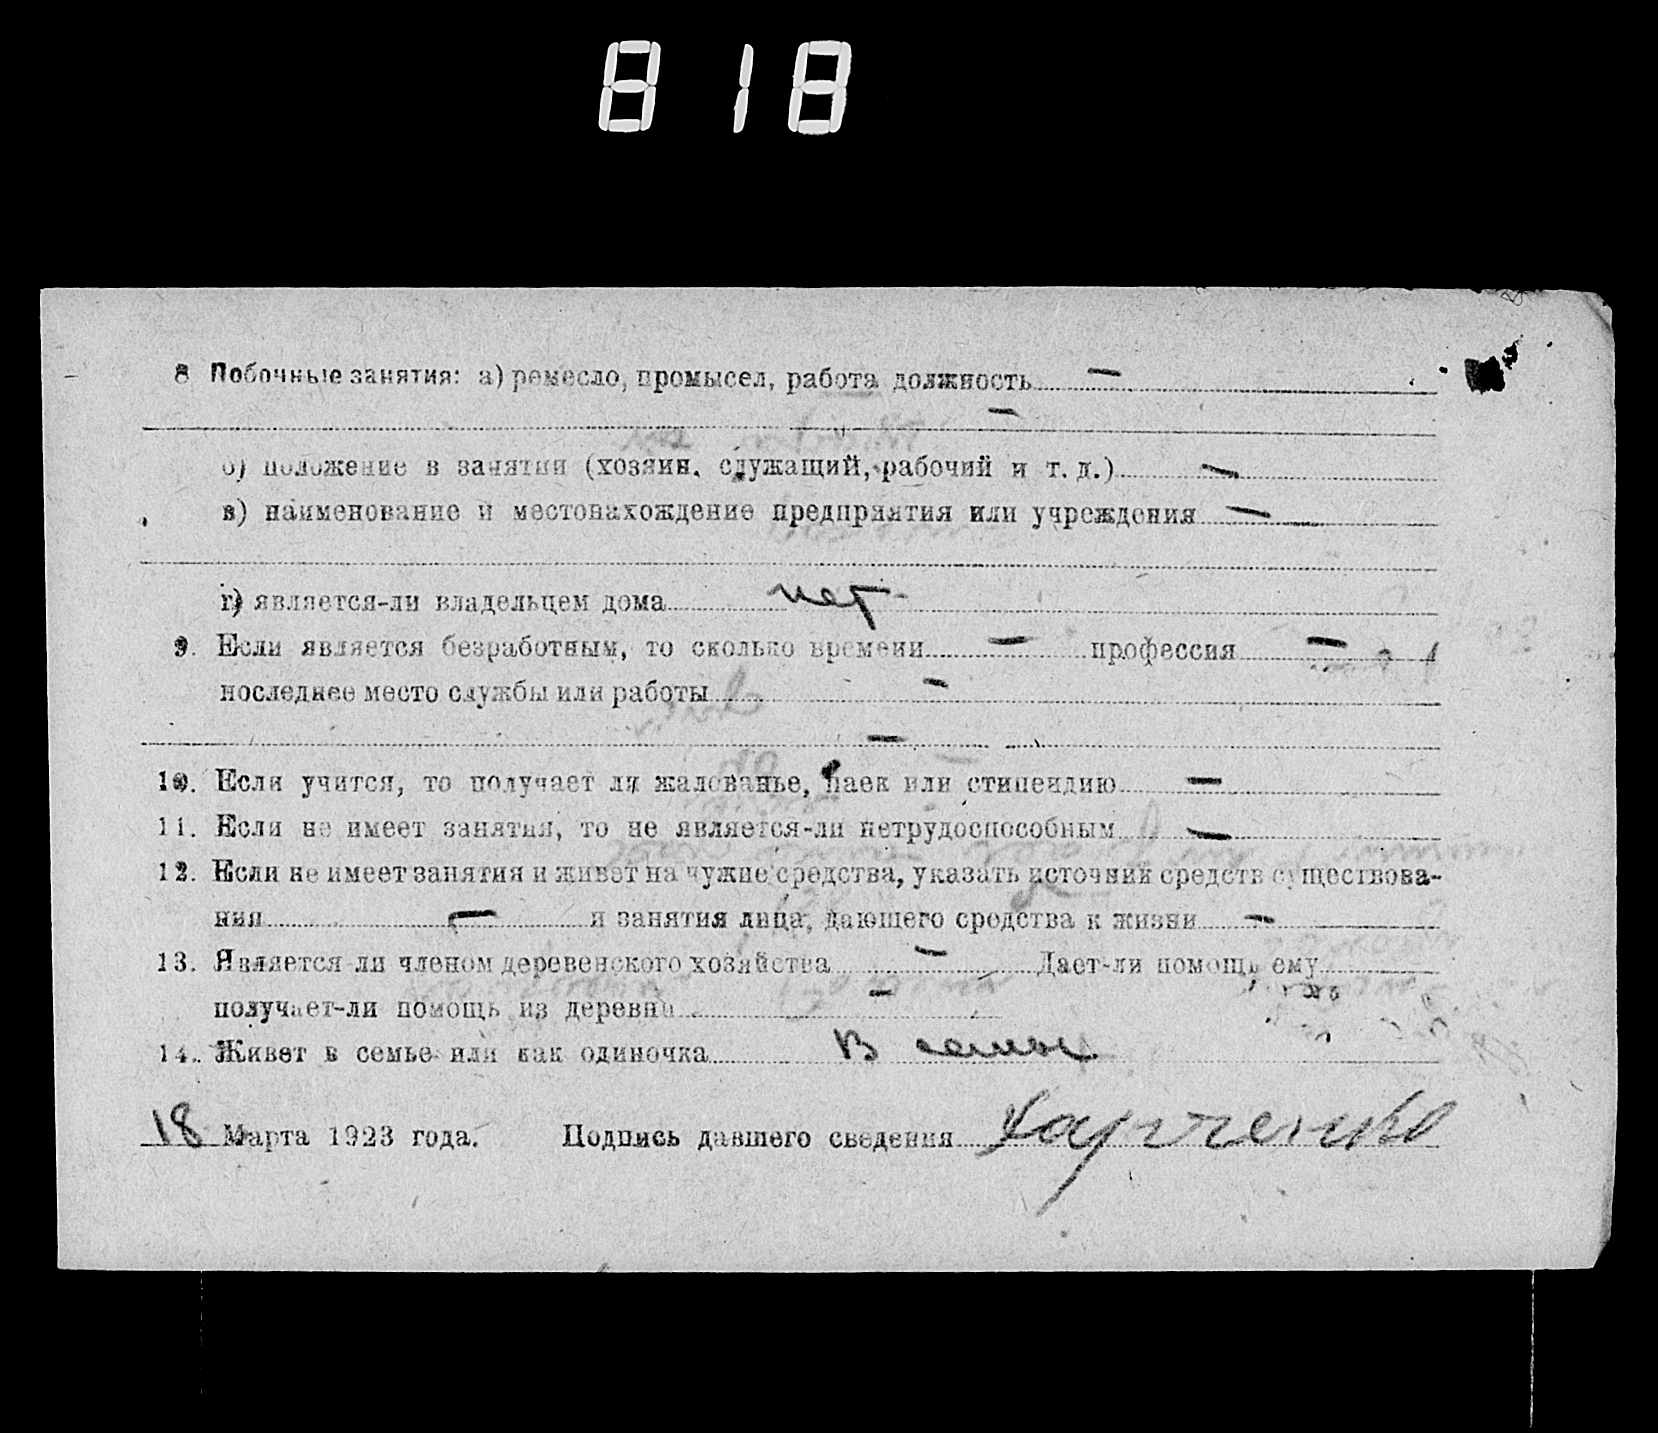 818
8 Побочные занятия: а) ремесло, промысел, работа должность —
—
б) положение в занятии (хозяин, служащий, рабочий и т. д.) —
в) наименование и местонахождение предприятия или учреждения —
г) является-ли владельцем дома нет
9. Если является безработным, то сколько времени — профессия —
последнее место службы или работы —
—
10. Если учится, то получает ли жалованье, паек или стипендию —
11. Если не имеет занятия, то не является-ли нетрудоспособным —
12. Если не имеет занятия и живет на чужие средства, указать источник средств существова-
ния — и занятия лица, дающего средства к жизни —
13. Является-ли членом деревенского хозяйства — Дает-ли помощь ему
получает-ли помощь из деревни —
14. Живет в семье или как одиночка В семье
18 Марта 1923 года. Подпись давшего сведения Харченко